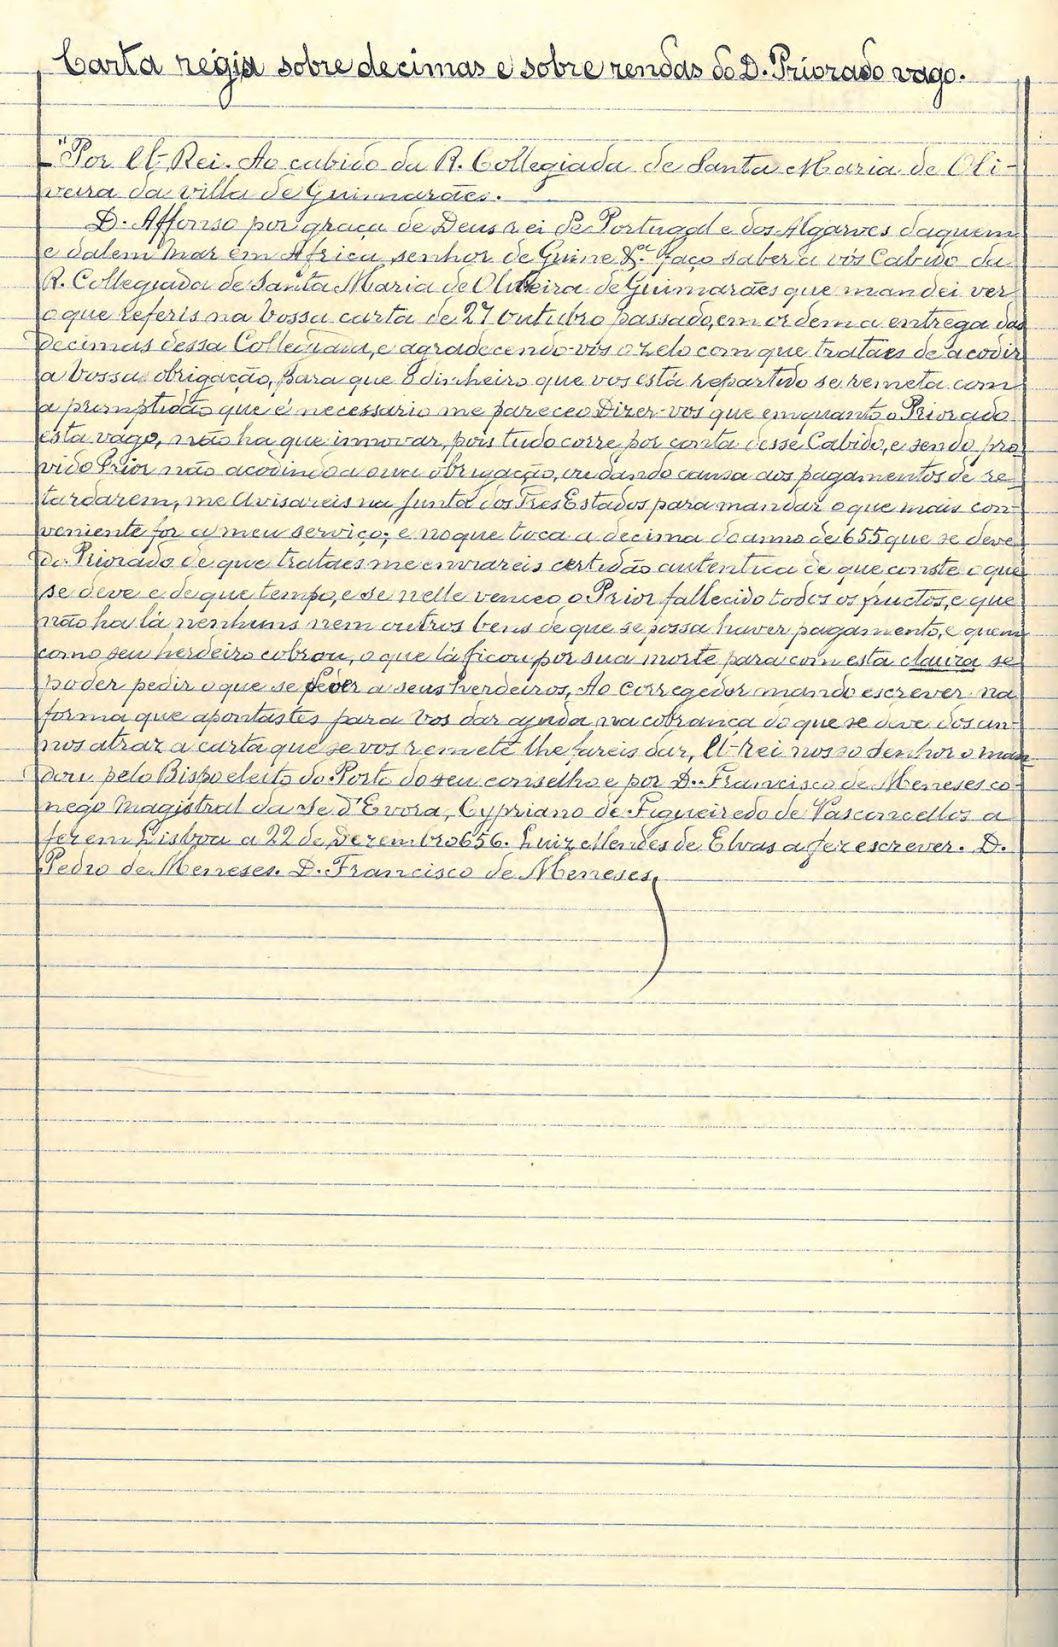 Carta régia sobre decimas e sobre rendas do D. Priorado vago.
"Por El-Rei. Ao cabido da R. Collegiada de Santa Maria de Oli-
veira da villa de Guimarães.
D. Affonso por graça de Deus rei de Portugal e dos Algarves daquem
e dalem mar em Africa, senhor de Guine &.ª Faço saber a vós Cabido da
R. Collegiada de Santa Maria de Oliveira de Guimarães que mandei ver
o que referis na vossa carta de 27 outubro passado, em ordem a entrega das
decimas dessa Collegiada, e agradecendo-vos o zelo com que trataes de acodir
a vossa obrigação, para que o dinheiro que vos está repartido se remeta com
a promptidão que é necessario me pareceo Dizer-vos que emquanto o Priorado
esta vago, não ha que innovar, pois tudo corre por conta desse Cabido, e sendo pro-
vido Prior não acodindo a sua obrigação, ou dando causa aos pagamentos de re-
tardarem, me avisareis na Junta dos Tres Estados para mandar o que mais con-
veniente for a meu serviço; e no que toca a decima do anno de 655 que se deve
do Priorado de que trataes me enviareis certidão autentica de que conste o que
se deve e de que tempo, e se nelle venceo o Prior fallecido todos os fructos, e que
não ha lá nenhuns nem outros bens de que se possa haver pagamento, e quem
como seu herdeiro cobrou, o que lá ficou por sua morte para com esta clauza se
poder pedir o que se dever a seus herdeiros, Ao corregedor mando escrever na
forma que apontastes para vos dar ajuda na cobrança do que se deve dos an-
nos atraz a carta que se vos remete lhe fareis dar, El-rei nosso senhor o man-
dou pelo Bispo eleito do Porto do seu conselho e por D. Francisco de Meneses co-
nego Magistral da Se d'Evora, Cypriano de Figueiredo de Vasconcellos a
fez em Lisboa a 22 de Dezembro 656. Luiz Mendes de Elvas a fez escrever. D.
Pedro de Meneses. D. Francisco de Meneses.